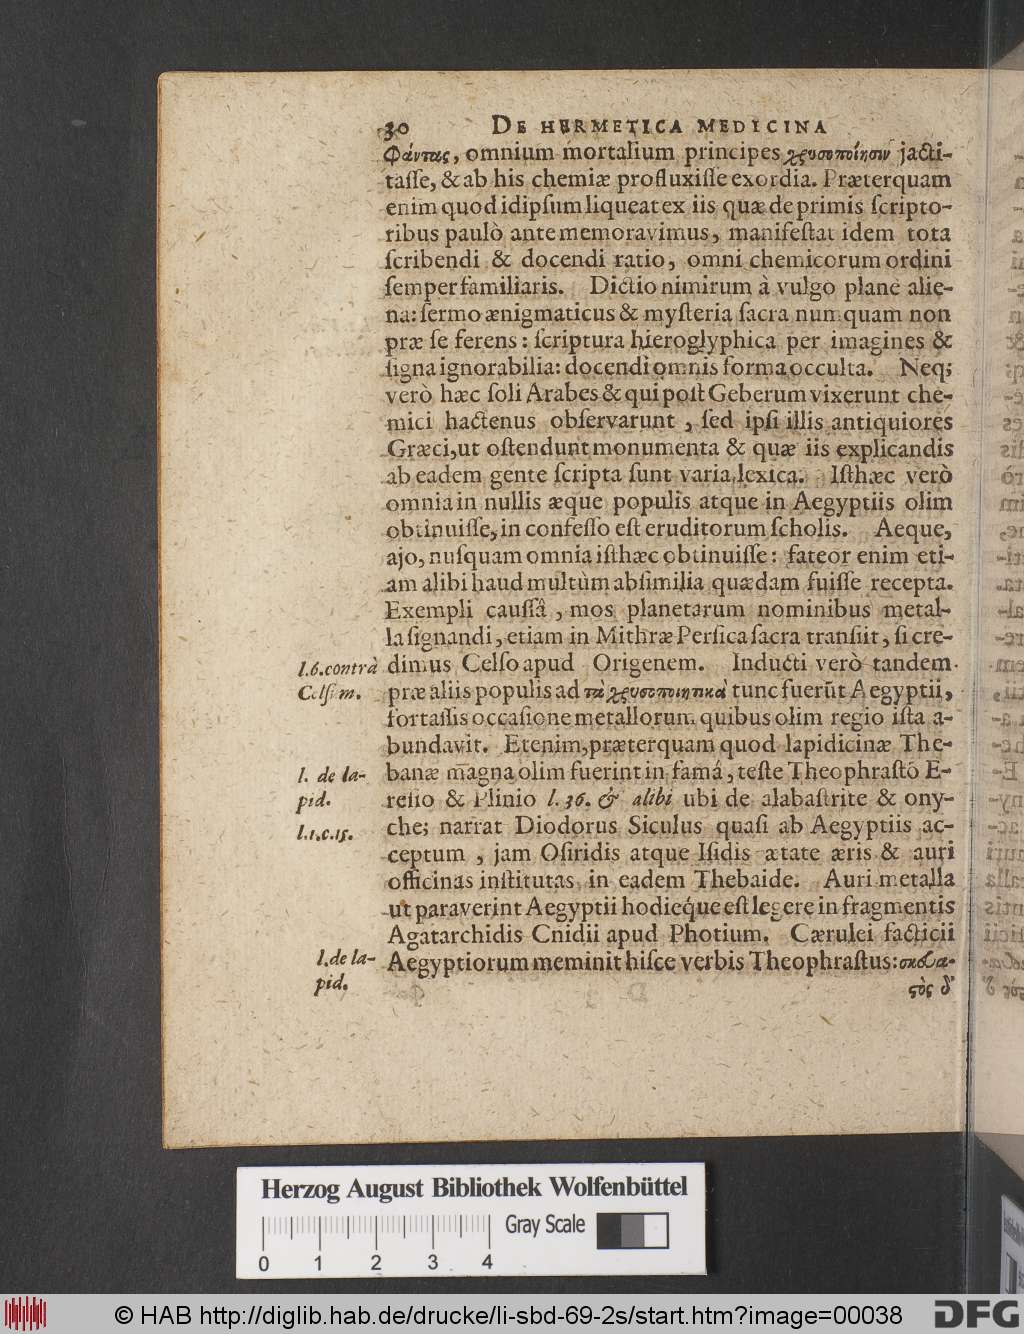 30 DE HERMETICA MEDICINA
φάντας, omnium mortalium principes χρυσοποίησιν jacti-
taſſe, & ab his chemiæ profluxiſſe exordia. Præterquam
enim quod idipſum liqueat ex iis quæ de primis ſcripto-
ribus paulò ante memoravimus, manifeſtat idem tota
ſcribendi & docendi ratio, omni chemicorum ordini
ſemper familiaris. Dictio nimirum à vulgo plane alie-
na: ſermo ænigmaticus & myſteria ſacra nunquam non
præ ſe ferens: ſcriptura hieroglyphica per imagines &
ſigna ignorabilia: docendi omnis forma occulta. Neq;
verò hæc ſoli Arabes & qui poſt Geberum vixerunt che-
mici hactenus obſervarunt, ſed ipſi illis antiquiores
Græci, ut oſtendunt monumenta & quæ iis explicandis
ab eadem gente ſcripta ſunt varia lexica. Iſthæc verò
omnia in nullis æque populis atque in Aegyptiis olim
obtinuiſſe, in confeſſo eſt eruditorum ſcholis. Aeque,
ajo, nuſquam omnia iſthæc obtinuiſſe: fateor enim eti-
am alibi haud multùm abſimilia quædam fuiſſe recepta.
Exempli cauſſâ, mos planetarum nominibus metal-
la ſignandi, etiam in Mithræ Perſica ſacra tranſiit, ſi cre-
l.6.contrà dimus Celſo apud Origenem. Inducti verò tandem
Celſum. præ aliis populis ad τὰ χρυσοποιητικὰ tunc fuerũt Aegyptii,
fortaſſis occaſione metallorum quibus olim regio iſta a-
bundavit. Etenim, præterquam quod lapidicinæ The-
l. de la- banæ magna olim fuerint in famâ, teſte Theophraſto E-
pid. reſio & Plinio l. 36. & alibi ubi de alabaſtrite & ony-
l.1.c.15. che; narrat Diodorus Siculus quaſi ab Aegyptiis ac-
ceptum, jam Oſiridis atque Iſidis ætate æris & auri
officinas inſtitutas in eadem Thebaide. Auri metalla
ut paraverint Aegyptii hodieque eſt legere in fragmentis
Agatarchidis Cnidii apud Photium. Cærulei facticii
l.de la- Aegyptiorum meminit hiſce verbis Theophraſtus: σκευα-
pid. ςὸς δ'
Herzog August Bibliothek Wolfenbüttel
Gray Scale
0 1 2 3 4
© HAB http://diglib.hab.de/drucke/li-sbd-69-2s/start.htm?image=00038
DFG